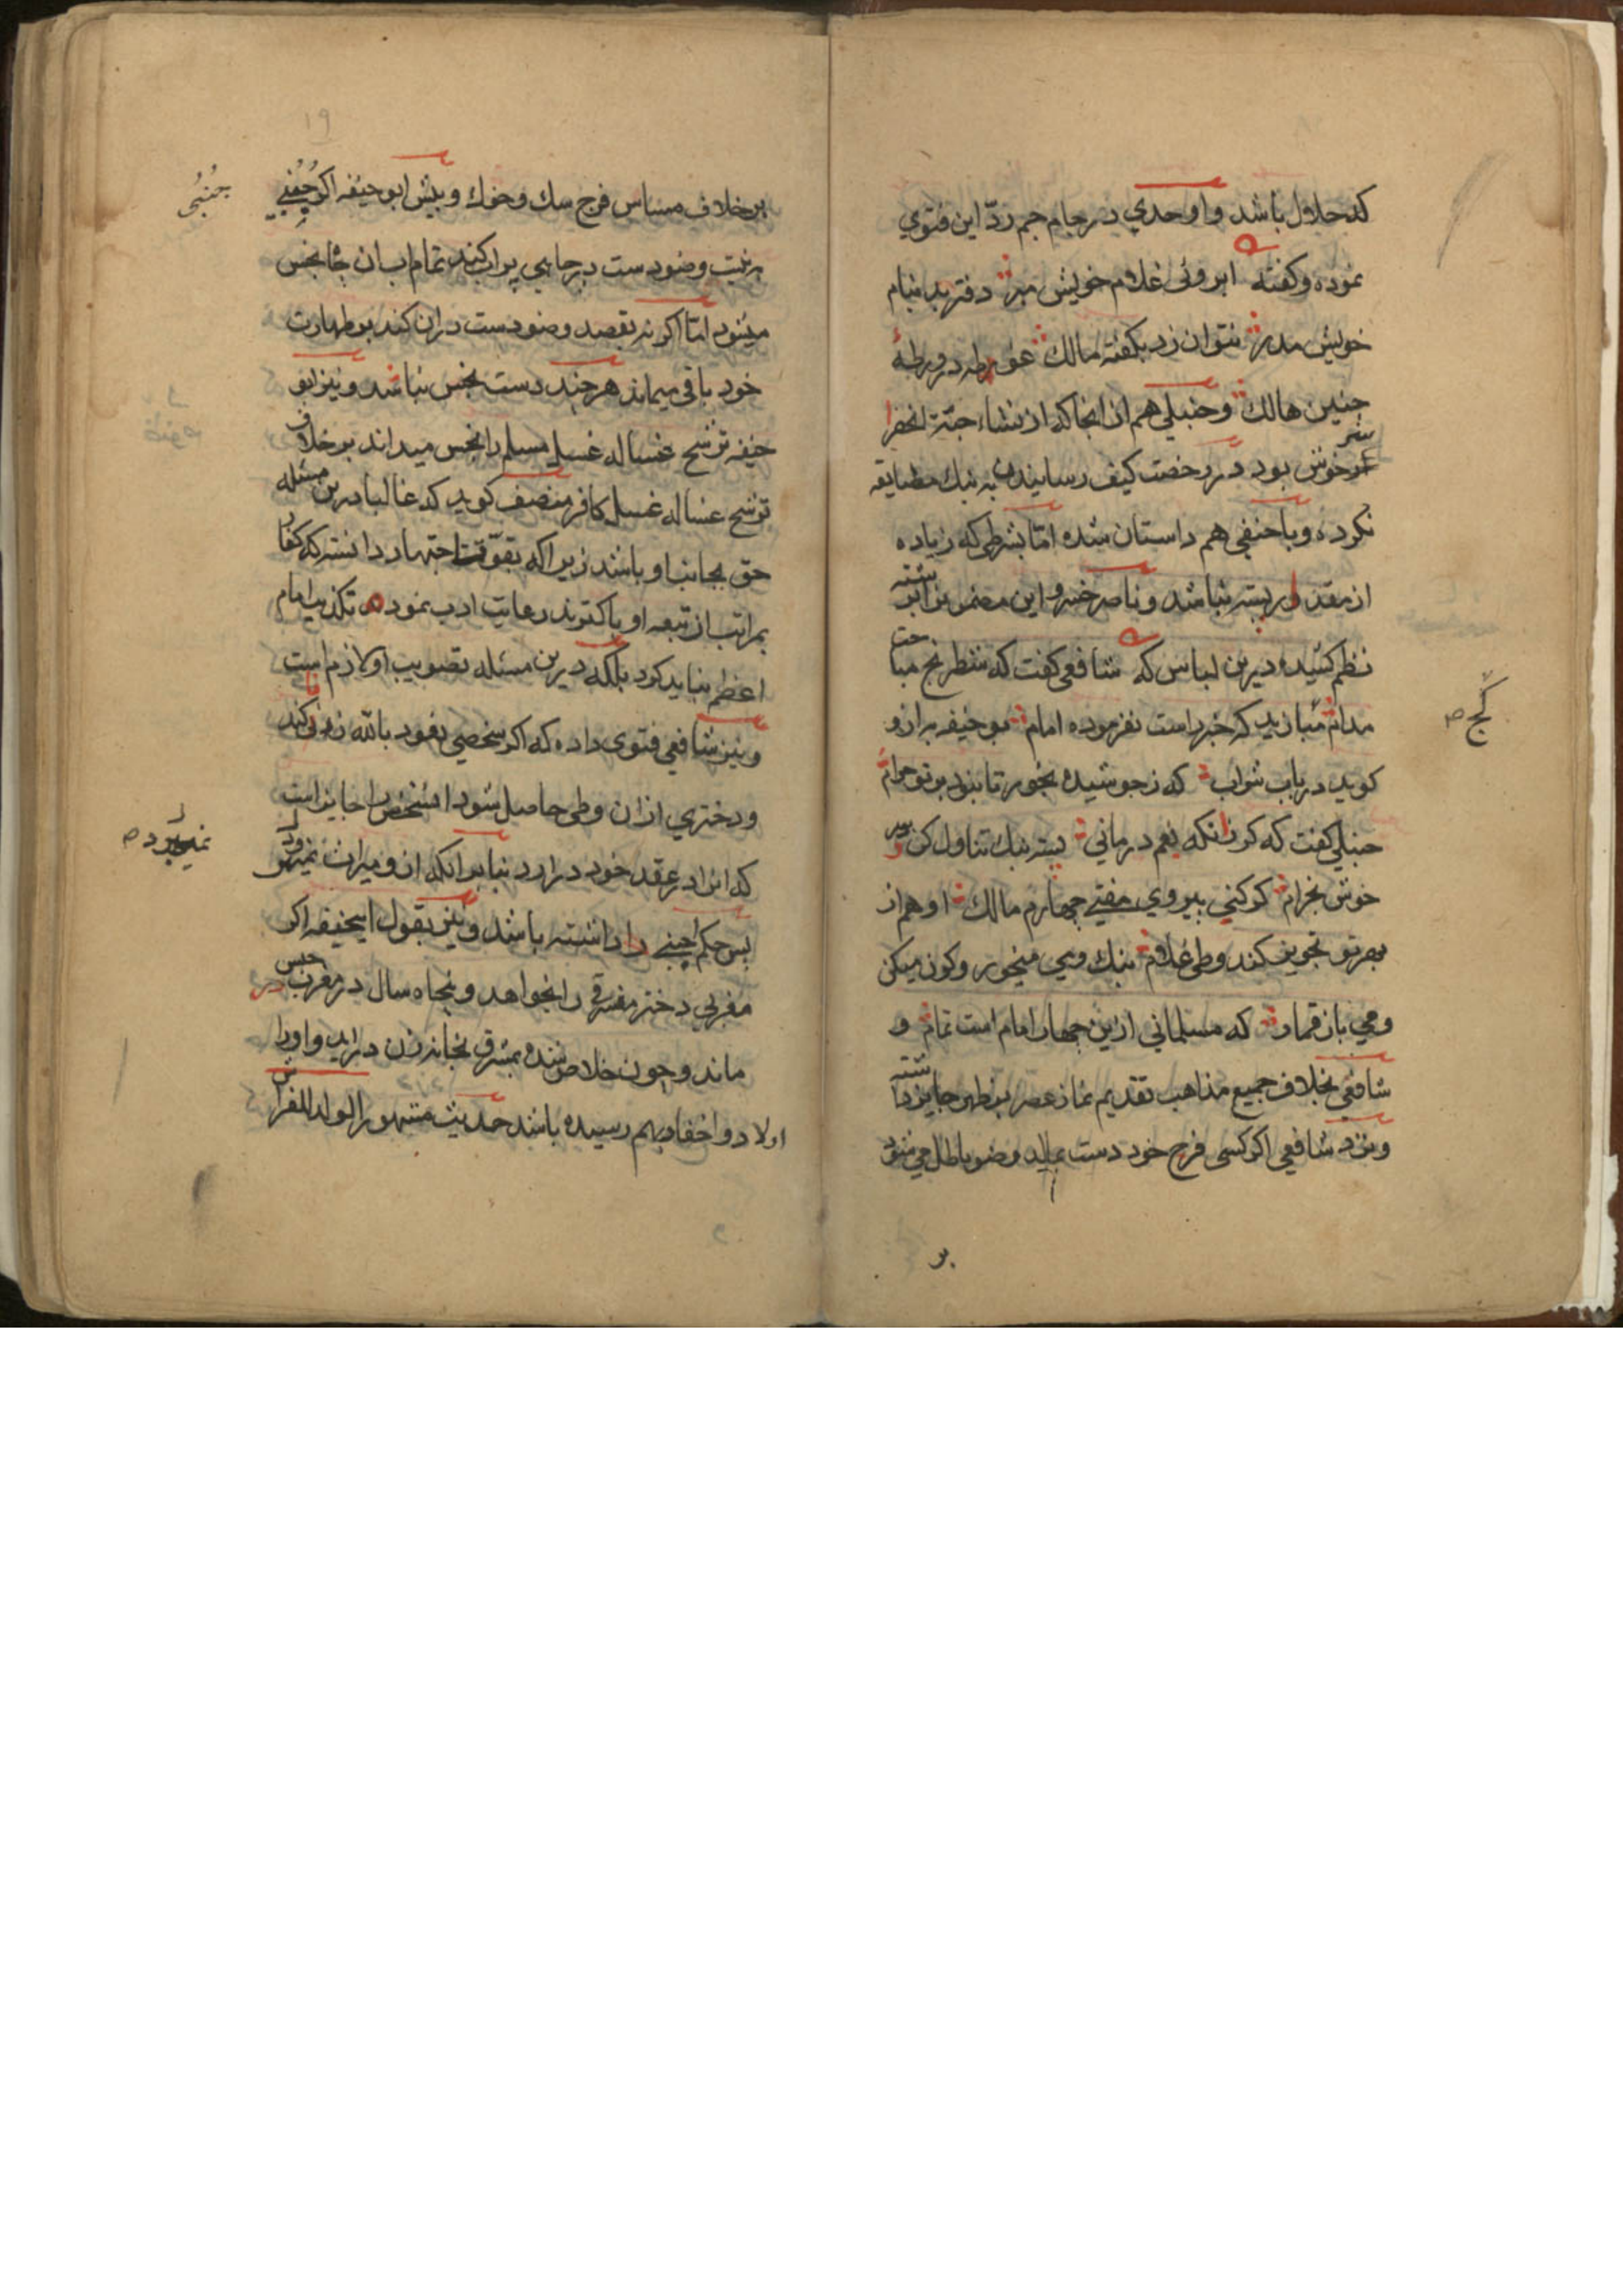 که حلال باشد و اوحدي در جام جم ردّ این فتوي
نموده و کفته ابروئی غلام خویش مبر دفتر بد بنام
خویش مدر نتوان زد بکفته مالک غوطه در ورطهٔ
چنین هالک و حنبلي هم از انجا که از نشاء جبّهٔ اخضر
سر خوش بود در رخصت کیف رسانیدن به بنک مضایقه
نکرده و با حنفي هم داستان شده امّا بشرطي که زیاده
از مقدار پسته نباشد و ناصر خسرو این مضمون را برشته
نظم کشیده درین لباس که شافعي کفت که شطرنج مباحت
مدام کج مبازید که خبر است نفرموده امام بو حنیفه به ازو
کوید در باب شراب که ز جوشیده بخور تا نبود بر تو حرام
حنبلي کفت که کر زانکه بغم درماني پسته بنک تناول کن و سر
خوش بخرام کر کني پیروي مفتی چهارم مالک او هم از
بهر تو تجویز کند وطی غلام بنک ومي میخور و کون میکن
ومي باز قمار که مسلماني ازین چهار امام است تمام و
شافعي بخلاف جمیع مذاهب تقدیم نماز عصر بظهر جایز داشته
ونزد شافعي اکر کسی فرج خود دست بمالد وضو باطل مي شود
بر
کج ص
۱۹
بر خلاف مساس فرج سک و خوک و پیش ابو حنیفه اکر جنبی
به نیت وضو دست در چاهي پر اب کند تمام اب ان چاه نجس
میشود امّا اکر نه بقصد وضو دست دران کند بر طهارت
خود باقي میماند هر چند دست نجس نباشد و نیز ابو
حنیفه ترشح غساله غسل مسلم را نجس میداند بر خلاف
ترشح غساله غسل کافر منصف کوید که غالبا درین مسئله
حق بجانب او باشد زیرا که بقوّت اجتهاد دانسته که کفار
بمراتب از تبعه او پاکترند رعایت ادب نموده تکذیب امام
اعظم نباید کرد بلکه درین مسئله تصویب او لازم است
و نیز شافعي فتوي داده که اکر شخصي نعوذ بالله زنا کند
و دختري ازان وطی حاصل شود ان شخص را جایز است
که او را در عقد خود در ارد بنا بر انکه ازو میراث نمیبرد
پس حکم اجنبی را داشته باشد و نیز بقول ابیحنیفه اکر
مغربي دختر مشرقي را بخواهد و پنجاه سال در مغرب در حبس
ماند و چون خلاص شده بمشرق بخانه زن در اید و او را
اولاد و احفاد بهم رسیده باشد حدیث مشهور الولد للفراش
جنبی
نمیبرد ص